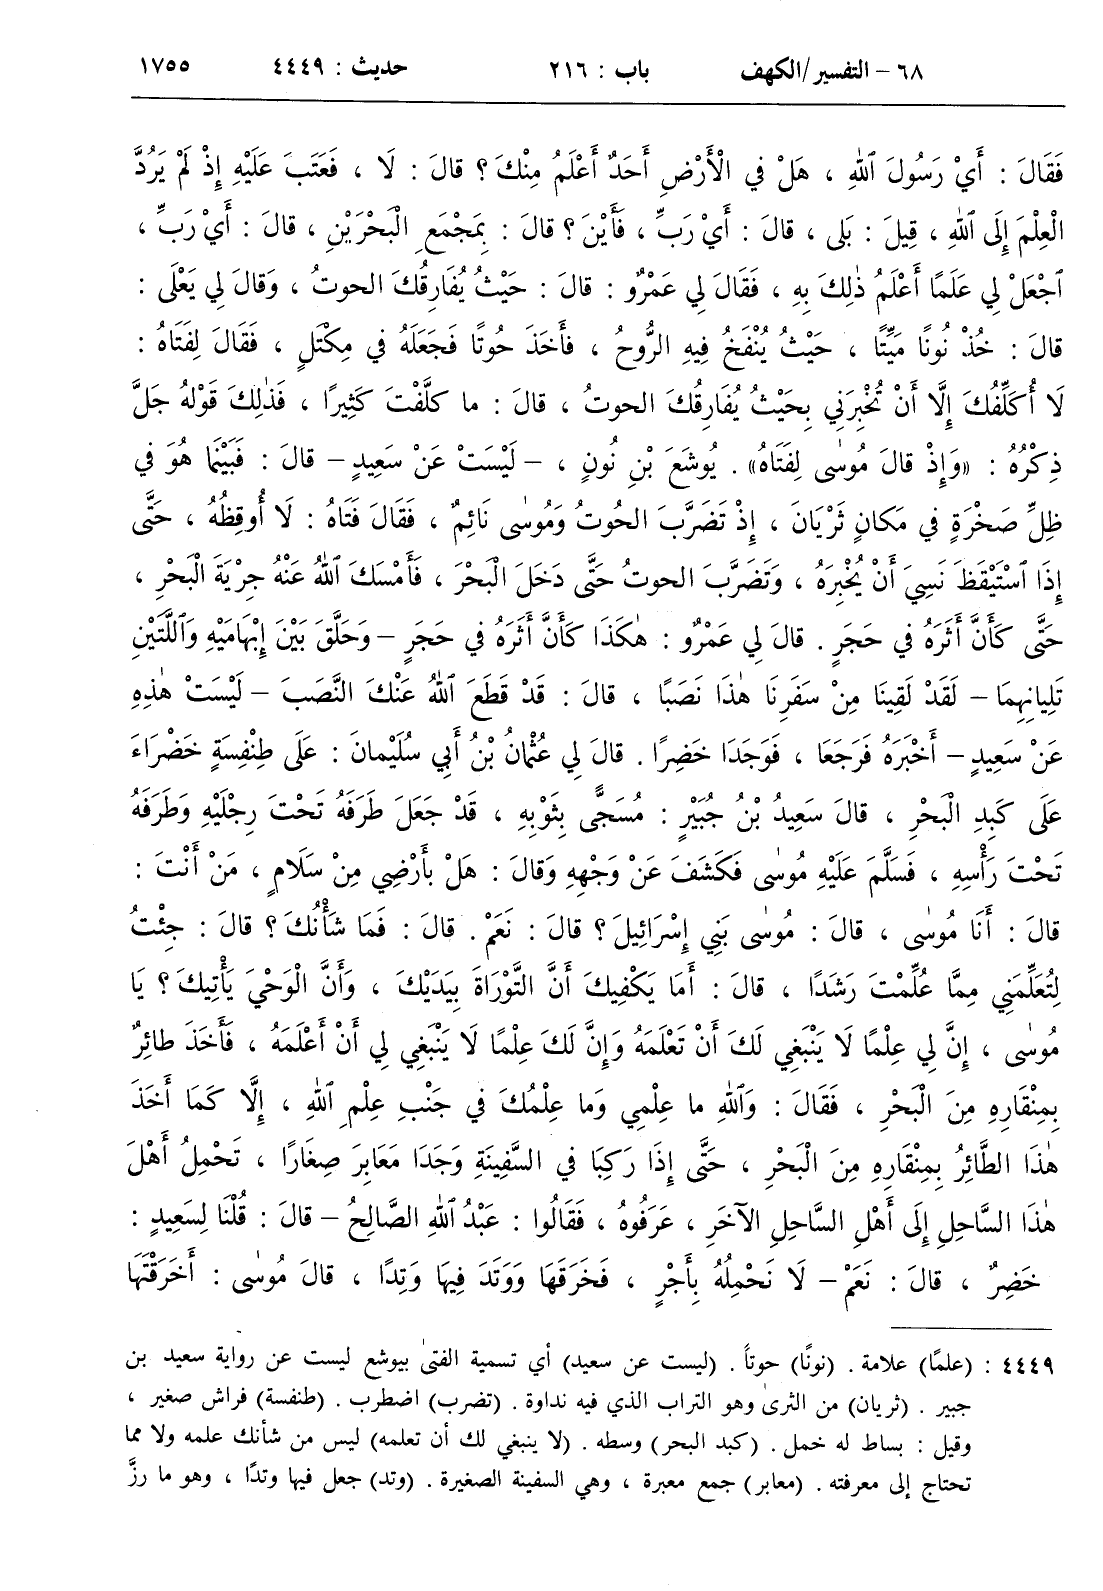 ٦٨ - التفسير/الكهف باب : ٢١٦ حديث : ٤٤٤٩ ١٧٥٥
فَقَالَ : أَيْ رَسُولَ ٱللهِ ، هَلْ فِي الْأَرْضِ أَحَدٌ أَعْلَمُ مِنْكَ ؟ قالَ : لَا ، فَعَتَبَ عَلَيْهِ إِذْ لَمْ يَرُدَّ
الْعِلْمَ إِلَى ٱللهِ ، قِيلَ : بَلى ، قالَ : أَيْ رَبِّ ، فَأَيْنَ ؟ قالَ : بِمَجْمَعِ الْبَحْرَيْنِ ، قالَ : أَيْ رَبِّ ،
ٱجْعَلْ لِي عَلَمًا أَعْلَمُ ذٰلِكَ بِهِ ، فَقَالَ لِي عَمْرٌو : قالَ : حَيْثُ يُفَارِقُكَ الحوتُ ، وَقالَ لِي يَعْلَى :
قالَ : خُذْ نُونًا مَيِّتًا ، حَيْثُ يُنْفَخُ فِيهِ الرُّوحُ ، فَأَخَذَ حُوتًا فَجَعَلَهُ فِي مِكْتَلٍ ، فَقَالَ لِفَتَاهُ :
لَا أُكَلِّفُكَ إِلَّا أَنْ تُخْبِرَنِي بِحَيْثُ يُفَارِقُكَ الحوتُ ، قالَ : ما كلَّفْتَ كَثِيرًا ، فَذٰلِكَ قَوْلُهُ جَلَّ
ذِكْرُهُ : «وَإِذْ قالَ مُوسٰى لِفَتَاهُ» . يُوشَعَ بْنِ نُونٍ ، - لَيْسَتْ عَنْ سَعِيدٍ - قالَ : فَبَيْنَمَا هُوَ فِي
ظِلِّ صَخْرَةٍ فِي مَكانٍ ثَرْيَانَ ، إِذْ تَضَرَّبَ الحُوتُ وَمُوسٰى نَائِمٌ ، فَقَالَ فَتَاهُ : لَا أُوقِظُهُ ، حَتَّى
إِذَا ٱسْتَيْقَظَ نَسِيَ أَنْ يُخْبِرَهُ ، وَتَضَرَّبَ الحوتُ حَتَّى دَخَلَ الْبَحْرَ ، فَأَمْسَكَ ٱللهُ عَنْهُ جِرْيَةَ الْبَحْرِ ،
حَتَّى كَأَنَّ أَثَرَهُ فِي حَجَرٍ . قالَ لِي عَمْرٌو : هٰكَذَا كَأَنَّ أَثَرَهُ فِي حَجَرٍ - وَحَلَّقَ بَيْنَ إِبْهَامَيْهِ وَٱللَّتَيْنِ
تَلِيانِهِمَا - لَقَدْ لَقِينَا مِنْ سَفَرِنَا هٰذَا نَصَبًا ، قالَ : قَدْ قَطَعَ ٱللهُ عَنْكَ النَّصَبَ - لَيْسَتْ هٰذِهِ
عَنْ سَعِيدٍ - أَخْبَرَهُ فَرَجَعَا ، فَوَجَدَا خَضِرًا . قالَ لِي عُثْمانُ بْنُ أَبِي سُلَيْمانَ : عَلَى طِنْفِسَةٍ خَضْرَاءَ
عَلَى كَبِدِ الْبَحْرِ ، قالَ سَعِيدُ بْنُ جُبَيْرٍ : مُسَجًّى بِثَوْبِهِ ، قَدْ جَعَلَ طَرَفَهُ تَحْتَ رِجْلَيْهِ وَطَرَفَهُ
تَحْتَ رَأْسِهِ ، فَسَلَّمَ عَلَيْهِ مُوسٰى فَكَشَفَ عَنْ وَجْهِهِ وَقالَ : هَلْ بِأَرْضِي مِنْ سَلَامٍ ، مَنْ أَنْتَ :
قالَ : أَنَا مُوسٰى ، قالَ : مُوسٰى بَنِي إِسْرَائِيلَ ؟ قالَ : نَعَمْ . قالَ : فَمَا شَأْنُكَ ؟ قالَ : جِئْتُ
لِتُعَلِّمَنِي مِمَّا عُلِّمْتَ رَشَدًا ، قالَ : أَمَا يَكْفِيكَ أَنَّ التَّوْرَاةَ بِيَدَيْكَ ، وَأَنَّ الْوَحْيَ يَأْتِيكَ ؟ يَا
مُوسٰى ، إِنَّ لِي عِلْمًا لَا يَنْبَغِي لَكَ أَنْ تَعْلَمَهُ وَإِنَّ لَكَ عِلْمًا لَا يَنْبَغِي لِي أَنْ أَعْلَمَهُ ، فَأَخَذَ طائِرٌ
بِمِنْقَارِهِ مِنَ الْبَحْرِ ، فَقَالَ : وَٱللهِ ما عِلْمِي وَما عِلْمُكَ فِي جَنْبِ عِلْمِ ٱللهِ ، إِلَّا كَمَا أَخَذَ
هٰذَا الطَّائِرُ بِمِنْقَارِهِ مِنَ الْبَحْرِ ، حَتَّى إِذَا رَكِبَا فِي السَّفِينَةِ وَجَدَا مَعَابِرَ صِغَارًا ، تَحْمِلُ أَهْلَ
هٰذَا السَّاحِلِ إِلَى أَهْلِ السَّاحِلِ الآخَرِ ، عَرَفُوهُ ، فَقَالُوا : عَبْدُ ٱللهِ الصَّالِحُ - قالَ : قُلْنَا لِسَعِيدٍ :
خَضِرٌ ، قالَ : نَعَمْ - لَا نَحْمِلُهُ بِأَجْرٍ ، فَخَرَقَهَا وَوَتَدَ فِيهَا وَتِدًا ، قالَ مُوسٰى : أَخَرَقْتَهَا
٤٤٤٩ : (علمًا) علامة . (نونًا) حوتاً . (ليست عن سعيد) أي تسمية الفتى بيوشع ليست عن رواية سعيد بن
جبير . (ثريان) من الثرى وهو التراب الذي فيه نداوة . (تضرب) اضطرب . (طنفسة) فراش صغير ،
وقيل : بساط له خمل . (كبد البحر) وسطه . (لا ينبغي لك أن تعلمه) ليس من شأنك علمه ولا مما
تحتاج إلى معرفته . (معابر) جمع معبرة ، وهي السفينة الصغيرة . (وتد) جعل فيها وتدًا ، وهو ما رزَّ